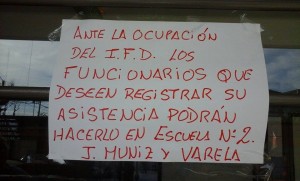 ANTE LA OCUPACIÓN
DEL I.F.D. LOS
FUNCIONARIOS QUE
DESEEN REGISTRAR SU
ASISTENCIA PODRÁN
HACERLO EN ESCUELA Nº2.
J. MUÑIZ Y VARELA